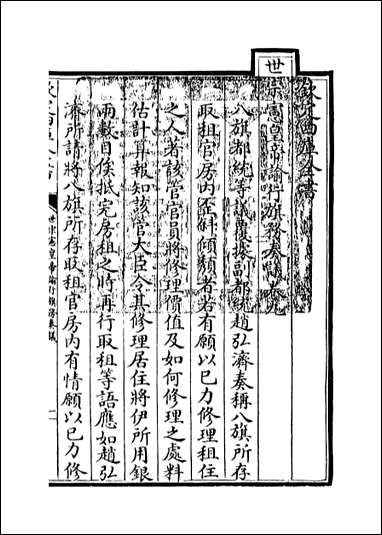 欽定四庫全書
世宗憲皇帝諭行旗務奏議卷
八旗都統等議覆據副都統趙弘濟奏稱八旗所存
取租官房内歪斜傾頽者若有願以已力修理租住
之人著該管官員將修理價值及如何修理之處料
估計算報知該管大臣令其修理居住將伊所用銀
兩數目俟抵完房租之時再行取租等語應如趙弘
濟所請將八旗所存取租官房内有情願以已力修
世宗憲皇帝諭行旗務奏議